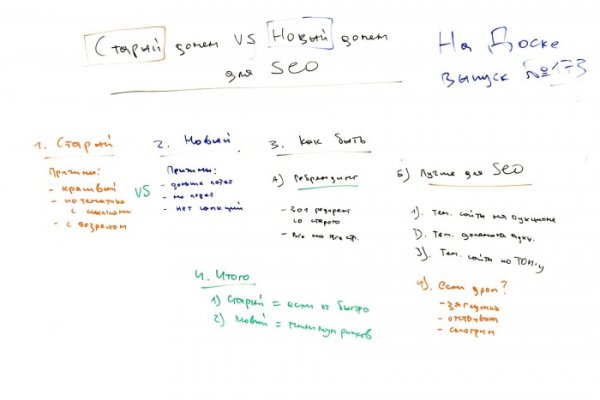 Старый домен VS Новый домен
для SEO
На Доске
выпуск №173
1. Старый
Причины:
- красивый
- по тематике
с ссылками
- с возрастом
VS
2. Новый
Причины:
- дольше
- нет санкций
3. Как быть
А) Ребрендинг
- 301 редирект
со старого
- Все на Все стр.
Б) Лучше для SEO
1). Тем. сайты на аукционе
2). Тем. домена аукц.
3). Тем. сайты по ТОП-у
4). если дроп?
- заглушка
- отстаивать
- смотрим
4. Итого
1) Старый = если оч быстро
2) Новый = минимум рисков